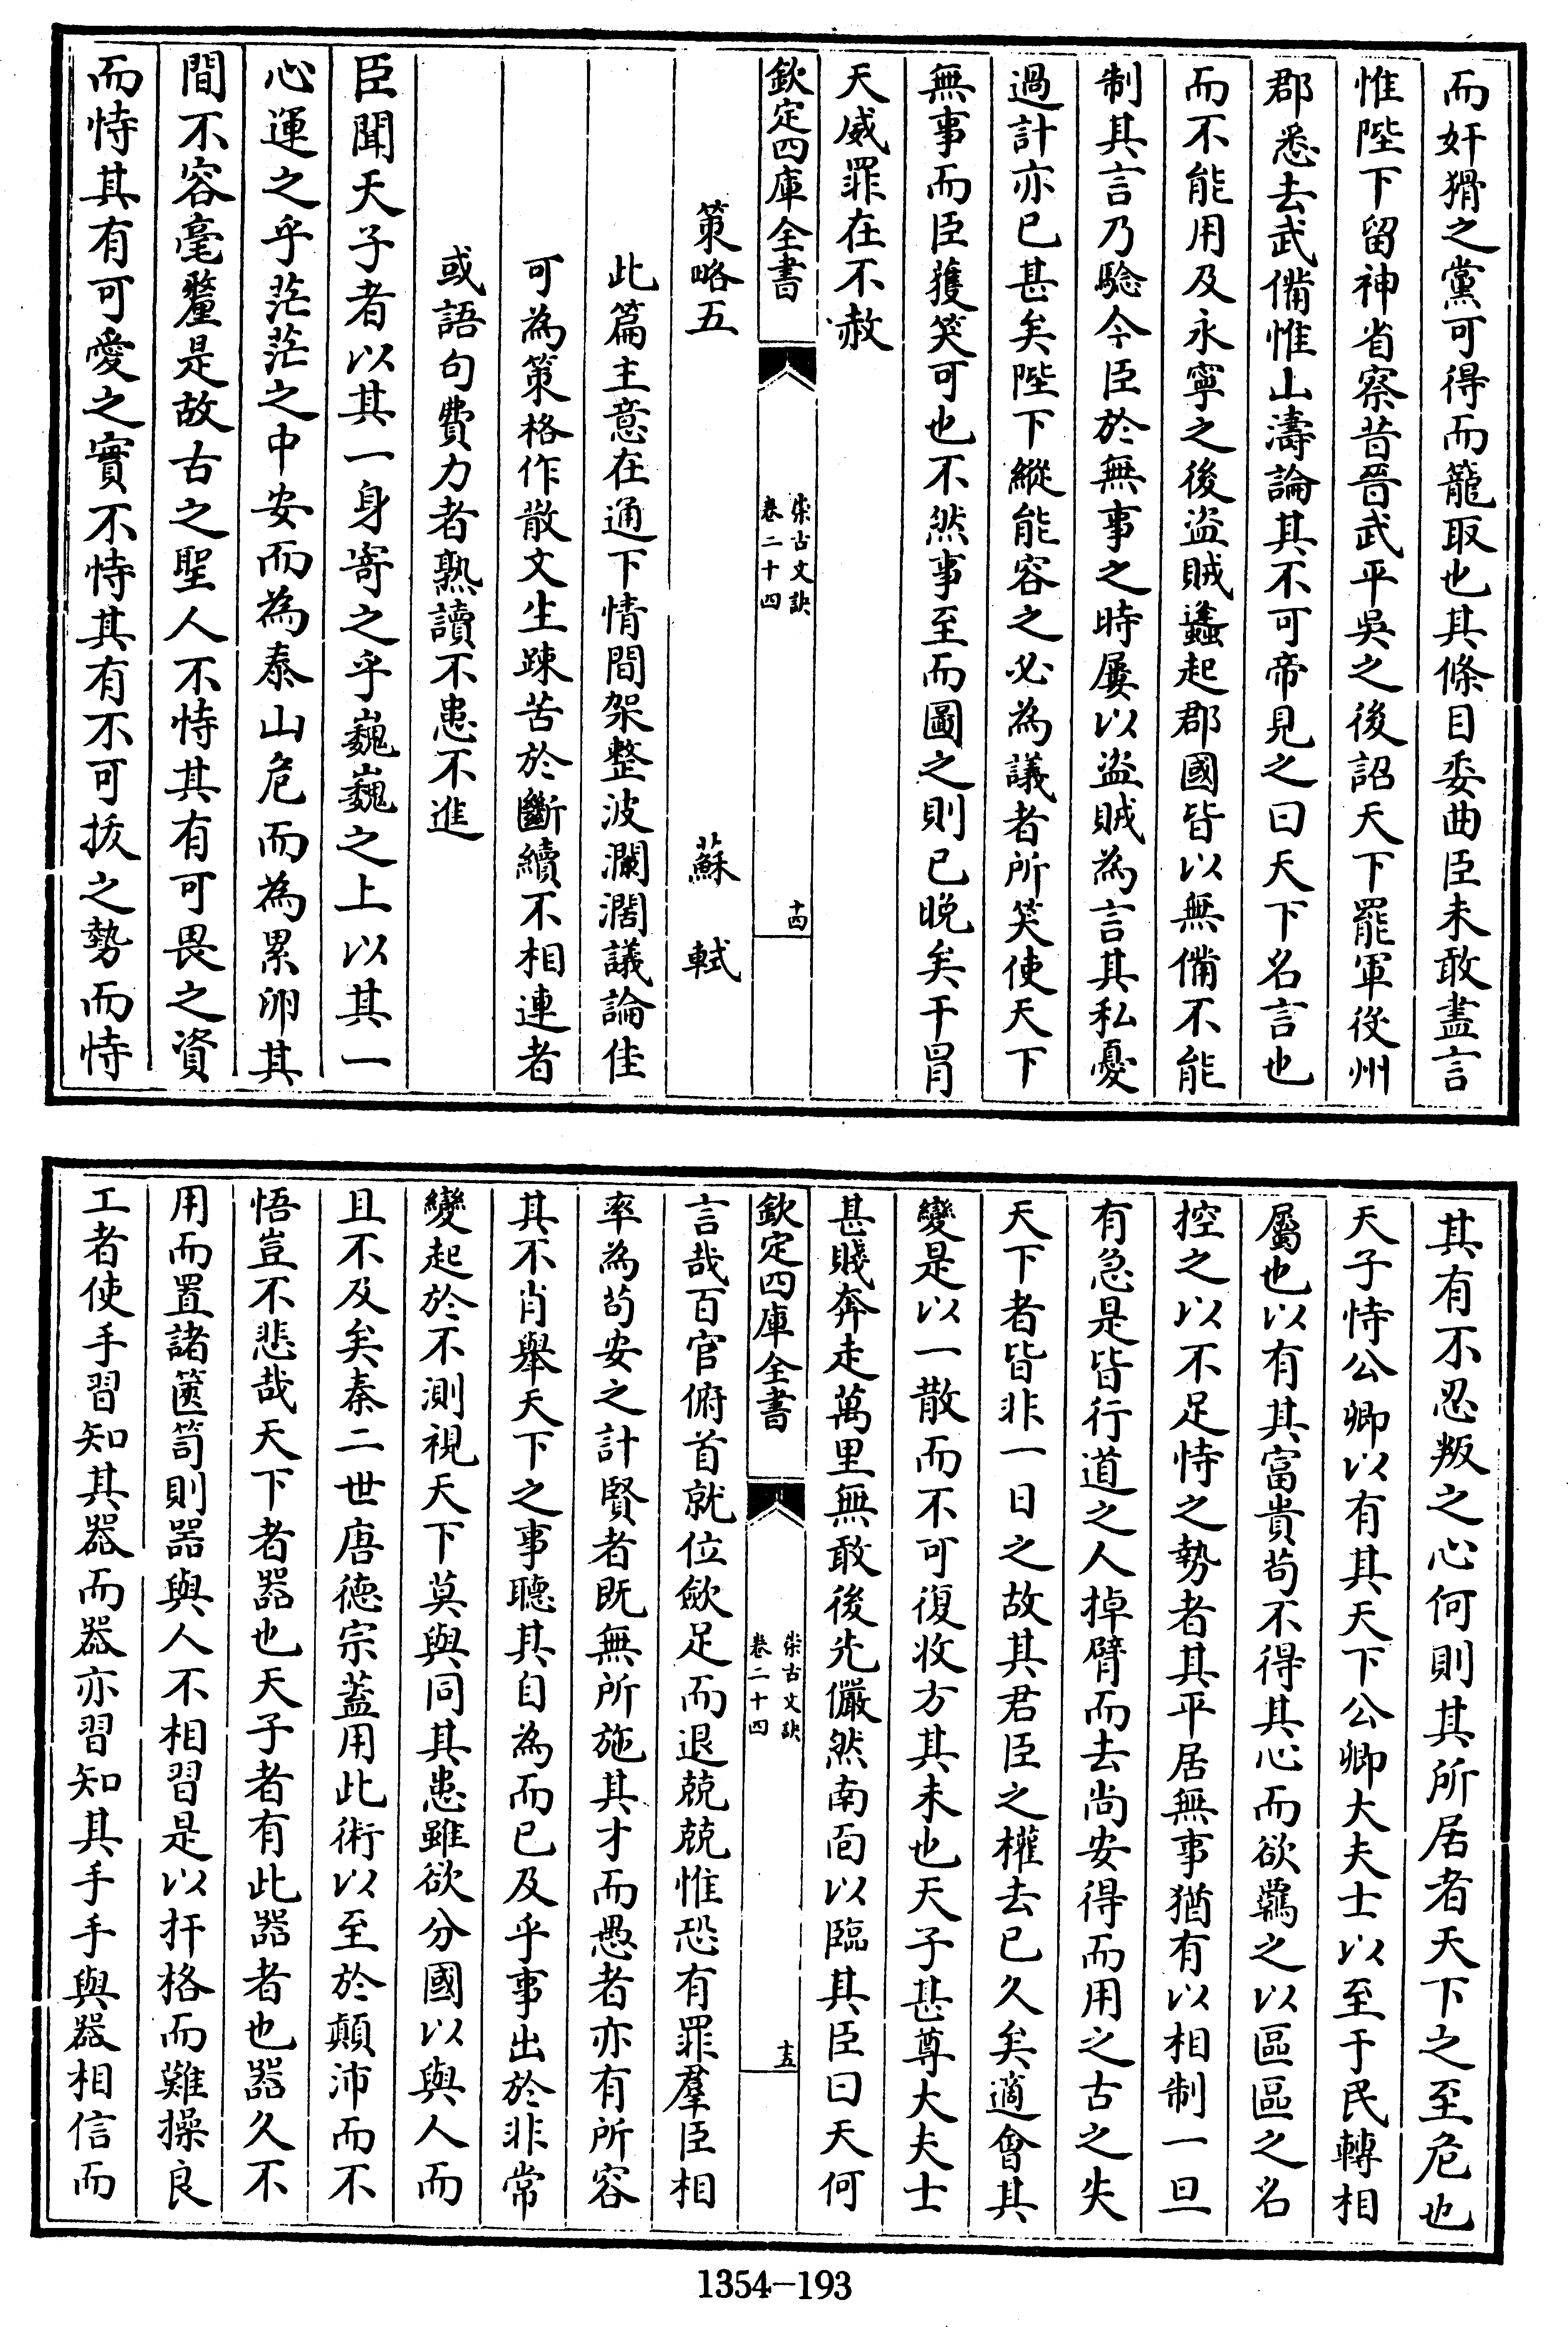 而奸猾之黨可得而籠取也其條目委曲臣未敢盡言
惟陛下留神省察昔晉武平吳之後詔天下罷軍役州
郡悉去武備惟山濤論其不可帝見之曰天下名言也
而不能用及永寧之後盜賊蠭起郡國皆以無備不能
制其言乃驗今臣於無事之時屢以盜賊為言其私憂
過計亦已甚矣陛下縱能容之必為議者所笑使天下
無事而臣獲笑可也不然事至而圖之則已晚矣干冒
天威罪在不赦
欽定四庫全書
崇古文訣
卷二十四
十四
策略五 蘇軾
此篇主意在通下情間架整波瀾濶議論佳
可為策格作散文生踈苦於斷續不相連者
或語句費力者熟讀不患不進
臣聞天子者以其一身寄之乎巍巍之上以其一
心運之乎茫茫之中安而為泰山危而為累卵其
間不容毫釐是故古之聖人不恃其有可畏之資
而恃其有可愛之實不恃其有不可拔之勢而恃
其有不忍叛之心何則其所居者天下之至危也
天子恃公卿以有其天下公卿大夫士以至于民轉相
屬也以有其富貴苟不得其心而欲羈之以區區之名
控之以不足恃之勢者其平居無事猶有以相制一旦
有急是皆行道之人掉臂而去尚安得而用之古之失
天下者皆非一日之故其君臣之權去已久矣適會其
變是以一散而不可復收方其未也天子甚尊大夫士
甚賤奔走萬里無敢後先儼然南靣以臨其臣曰天何
欽定四庫全書
崇古文訣
卷二十四
十五
言哉百官俯首就位歛足而退兢兢惟恐有罪羣臣相
率為苟安之計賢者既無所施其才而愚者亦有所容
其不肖舉天下之事聽其自為而已及乎事出於非常
變起於不測視天下莫與同其患雖欲分國以與人而
且不及矣秦二世唐德宗蓋用此術以至於顛沛而不
悟豈不悲哉天下者器也天子者有此器者也器久不
用而置諸篋笥則器與人不相習是以扞格而難操良
工者使手習知其器而器亦習知其手手與器相信而
1354-193